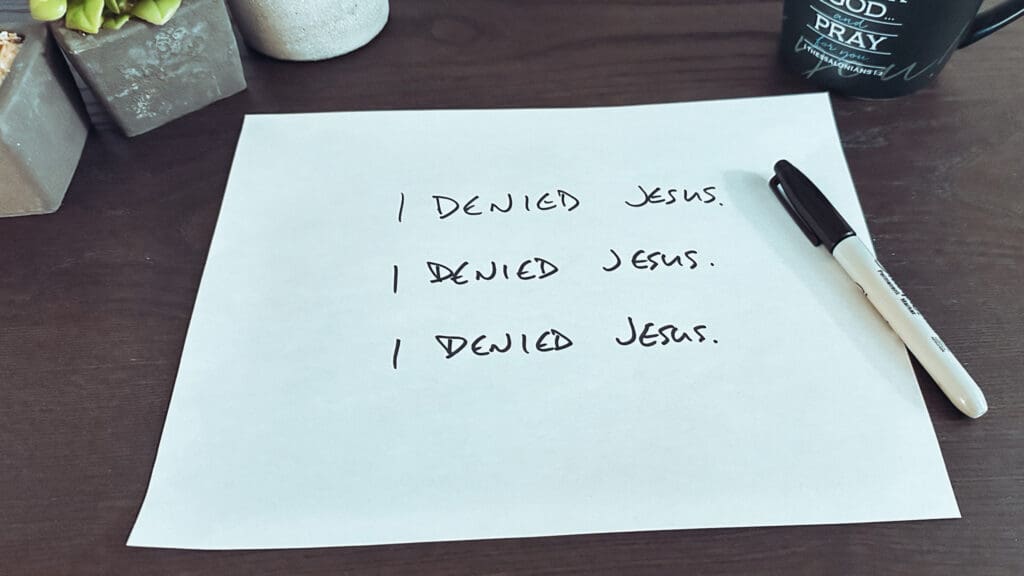 GOD...
and
PRAY
for you
1 THESSALONIANS 1:2
I DENIED JESUS.
I DENIED JESUS.
I DENIED JESUS.